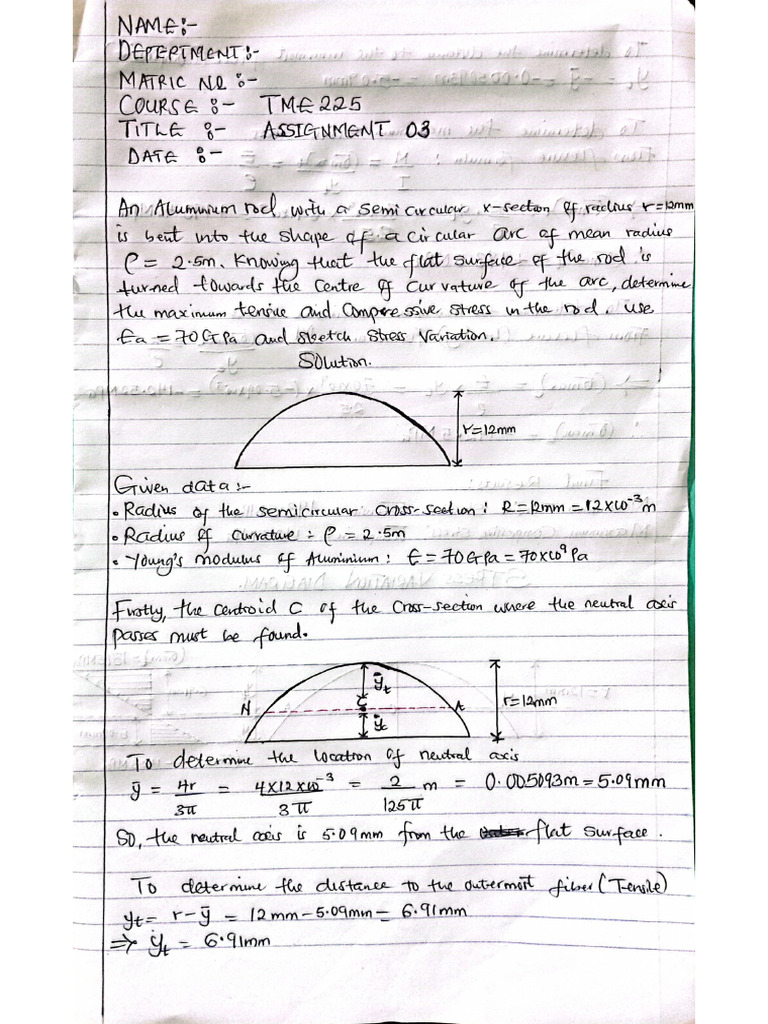 NAME:-
DEPEPTMENT:-
MATRIC NO :-
COURSE :- TME 225
TITLE :- ASSIGNMENT 03
DATE :-
An Aluminium rod with a semi circular x-section of radius r=12mm
is bent into the shape of a circular arc of mean radius
ρ = 2.5m. Knowing that the flat surface of the rod is
turned towards the centre of curvature of the arc, determine
the maximum tensive and Compressive stress in the rod. Use
Ea = 70GPa and sketch stress variation.
Solution.
r=12mm
Given data:-
• Radius of the semicircular cross-section: R=12mm = 12×10⁻³ m
• Radius of curvature: ρ = 2.5m
• Young's modulus of Aluminium: E = 70GPa = 70×10⁹ Pa
Firstly, the centroid C of the cross-section where the neutral axis
passes must be found.
N C A
ȳt
ȳt
r=12mm
To determine the location of neutral axis
ȳ = 4r/3π = 4×12×10⁻³/3π = 2/125π m = 0.005093m = 5.09mm
So, the neutral axis is 5.09mm from the flat surface.
To determine the distance to the outermost fiber (Tensile)
yt = r-ȳ = 12mm - 5.09mm = 6.91mm
⇒ yt = 6.91mm